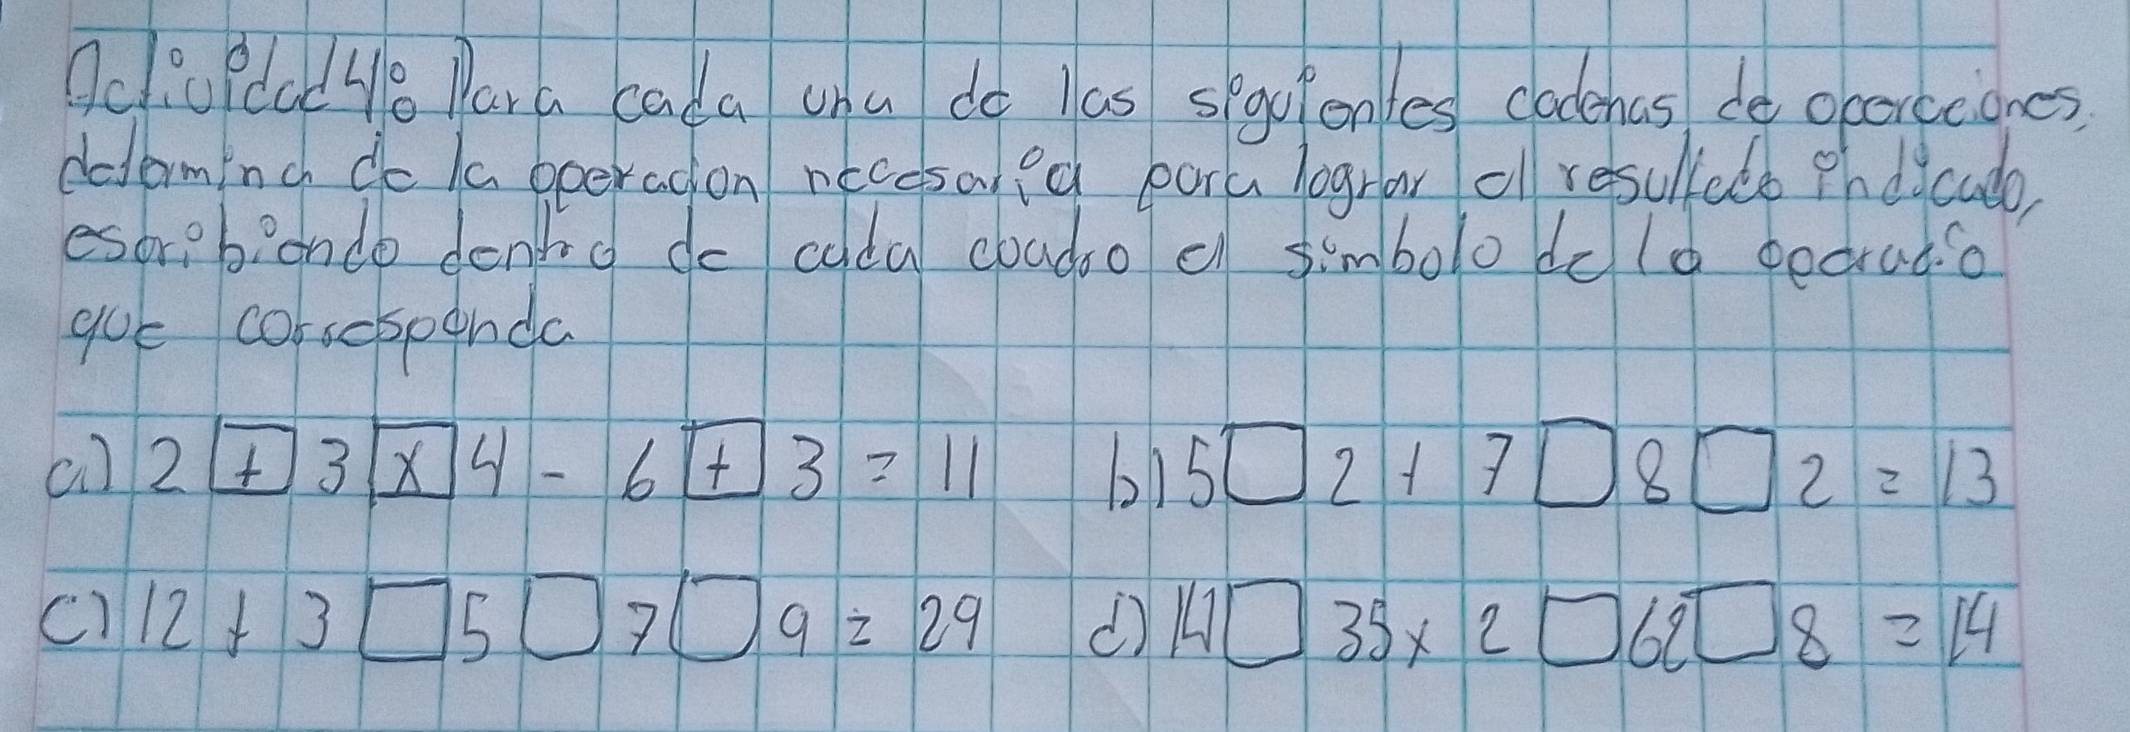 Actividad 4: Para cada una de las siguientes cadenas de operceiones,
determina de la operacion necesaria para lograr el resultado indicado,
escribiendo dentro de cada coadro el simbolo de la operacio
que corresponda
a) 2 + 3 x 4 - 6 + 3 = 11 b) 5 □ 2 + 7 □ 8 □ 2 = 13
c) 12 + 3 □ 5 □ 7 □ 9 = 29 d) 14 □ 35 x 2 □ 62 □ 8 = 14